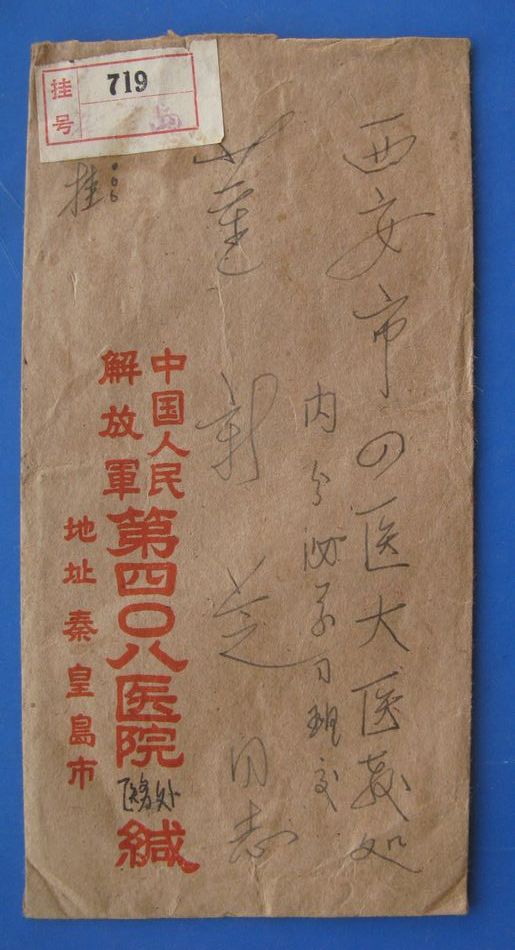 西安市四医大医教处
内分泌学习班交
新芝同志
挂号
719
挂:
中国人民
解放軍
第四〇八医院
医务处
缄
地址秦皇島市